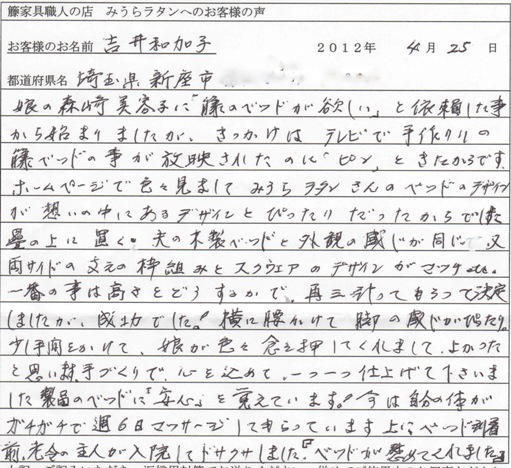 籐家具職人の店 みうらラタンへのお客様の声
お客様のお名前 吉井和加子 2012年 4月 25日
都道府県名 埼玉県新座市
娘の森崎美容子に「籐のベッドが欲しい」と依頼した事
から始まりましたが、きっかけはテレビで手作りの
籐ベッドの事が放映されたのに「ピン」ときたからです。
ホームページで色々見まして みうらラタンさんのベッドのデザイン
が想いの中にあるデザインとぴったりだったからです
畳の上に置く。夫の木製ベッドと外観の感じが同じで 又
両サイドの支えの枠組みとスクウェアのデザインがマッチetc.
一番の事は高さをどうするかで、再三計ってもらって決定
しましたが、成功でした。横に腰かけて脚の感じがぴたり。
少し手間をかけて、娘が色々念を押してくれまして、よかった
と思います。手づくりで、心を込めて、一つ一つ仕上げて下さいま
した製品のベッドに「安心」を覚えています。今は自分の体が
ガチガチで週6日マッサージしてもらっています上にベッド到着
前、老令の主人が入院してドサクサしました。「ベッドが慰めてくれました」